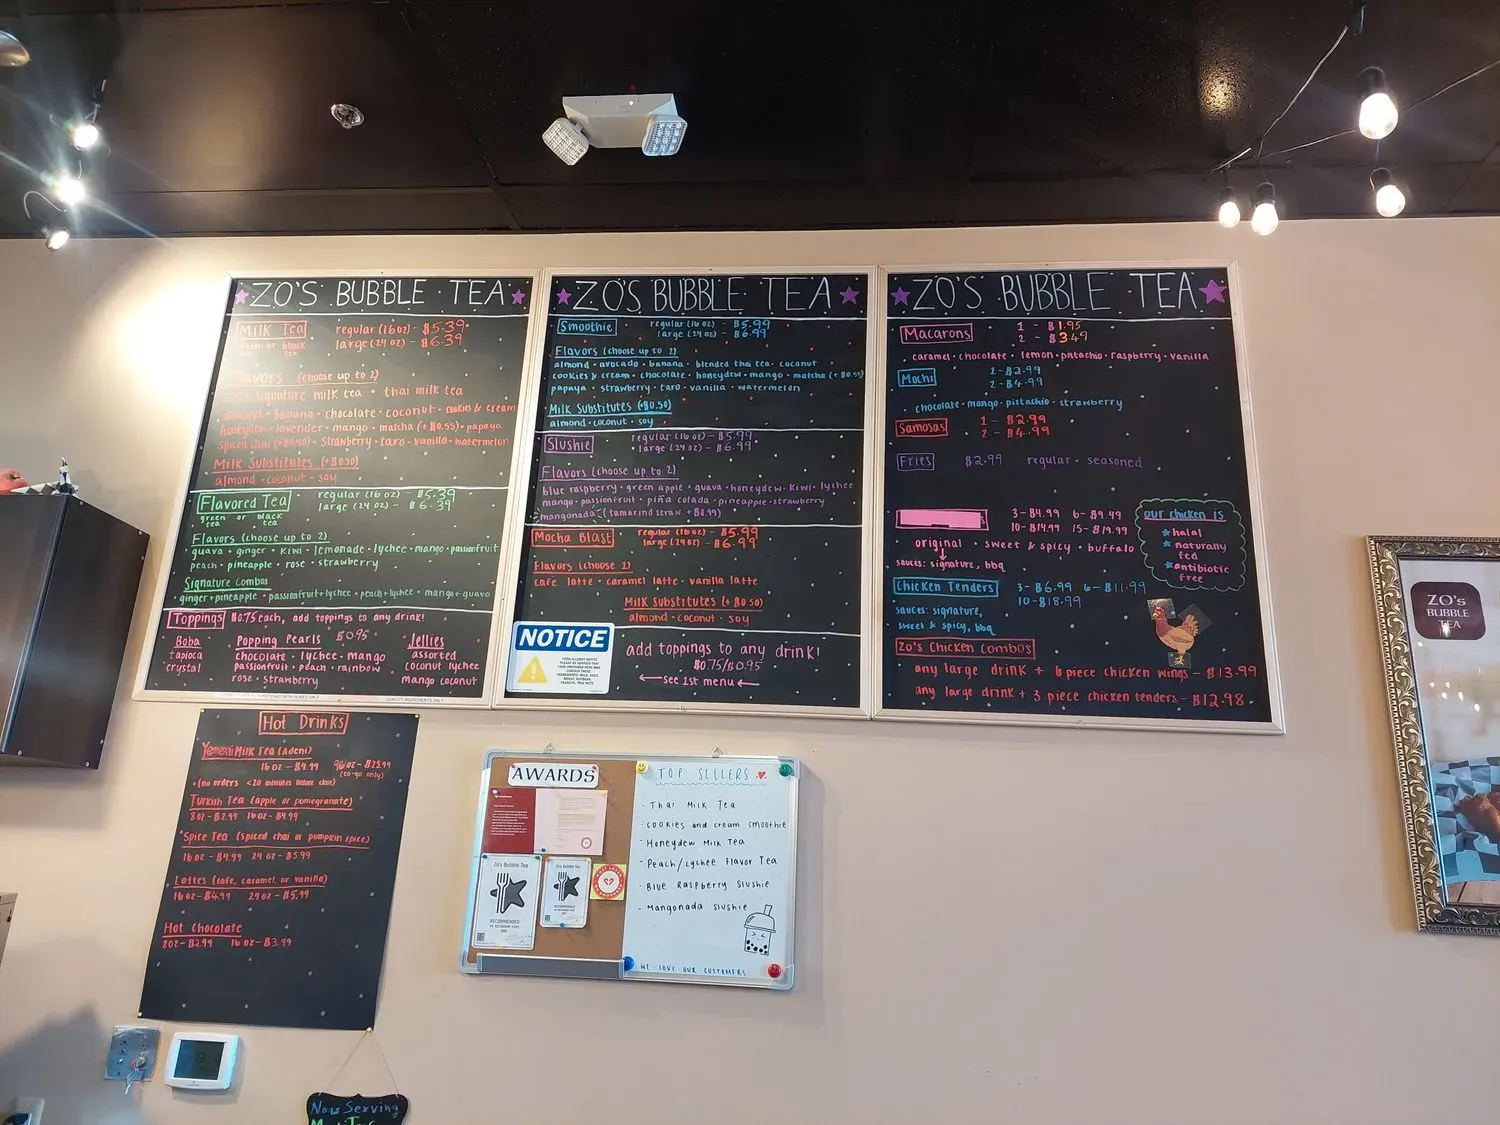 ZO'S BUBBLE TEA
Milk Tea
regular (16oz) - $5.39
large (24 oz) - $6.39
green or black
tea tea
Flavors (choose up to 2)
zo's signature milk tea · thai milk tea
almond · banana · chocolate · coconut · cookies & cream
honeydew · lavender · mango · matcha (+$0.55) · papaya
spiced chai (+$0.40) · strawberry · taro · vanilla · watermelon
Milk Substitutes (+$0.50)
almond · coconut · soy
Flavored Tea
regular (16 oz) - $5.39
large (24 oz) - $6.39
green or black
tea tea
Flavors (choose up to 2)
guava · ginger · kiwi · lemonade · lychee · mango · passionfruit
peach · pineapple · rose · strawberry
Signature Combos
ginger+pineapple · passionfruit+lychee · peach+lychee · mango+guava
Toppings
$0.75 each, add toppings to any drink!
Boba
tapioca
crystal
Popping Pearls $0.95
chocolate · lychee · mango
passionfruit · peach · rainbow
rose · strawberry
Jellies
assorted
coconut lychee
mango coconut
QUALITY INGREDIENTS ONLY
ZO'S BUBBLE TEA
Smoothie
regular (16 oz) - $5.99
large (24 oz) - $6.99
Flavors (choose up to 2)
almond · avocado · banana · blended thai tea · coconut
cookies & cream · chocolate · honeydew · mango · matcha (+$0.55)
papaya · strawberry · taro · vanilla · watermelon
Milk Substitutes (+$0.50)
almond · coconut · soy
Slushie
regular (16 oz) - $5.99
large (24 oz) - $6.99
Flavors (choose up to 2)
blue raspberry · green apple · guava · honeydew · kiwi · lychee
mango · passionfruit · piña colada · pineapple · strawberry
mangonada (tamarind straw +$0.99)
Mocha Blast
regular (16oz) - $5.99
large (24oz) - $6.99
Flavors (choose 1)
cafe latte · caramel latte · vanilla latte
Milk Substitutes (+$0.50)
almond · coconut · soy
NOTICE
add toppings to any drink!
$0.75/$0.95
see 1st menu
ZO'S BUBBLE TEA
Macarons
1 - $1.95
2 - $3.49
caramel · chocolate · lemon · pistachio · raspberry · vanilla
Mochi
1 - $2.99
2 - $4.99
chocolate · mango · pistachio · strawberry
Samosas
1 - $2.99
2 - $4.99
Fries
$2.99 regular · seasoned
3 - $4.99 6 - $9.49
10 - $14.99 15 - $19.99
original · sweet & spicy · buffalo
sauces: signature, bbq
our chicken is
halal
naturally
fed
antibiotic
free
Chicken Tenders
3 - $6.99 6 - $11.99
10 - $18.99
sauces: signature,
sweet & spicy, bbq
Zo's Chicken Combos
any large drink + 6 piece chicken wings - $13.99
any large drink + 3 piece chicken tenders - $12.98
Hot Drinks
Yemeni Milk Tea (Adeni)
16 oz - $4.99 96 oz - $25.99
(to-go only)
(no orders <20 minutes before close)
Turkish Tea (apple or pomegranate)
8oz - $2.99 16oz - $4.99
Spice Tea (spiced chai or pumpkin spice)
16 oz - $4.99 24 oz - $5.99
Lattes (cafe, caramel, or vanilla)
16 oz - $4.99 24 oz - $5.99
Hot Chocolate
8oz - $2.99 16 oz - $3.99
AWARDS
Zo's Bubble Tea
RECOMMENDED
Zo's Bubble Tea
RECOMMENDED
TOP SELLERS
- Thai Milk Tea
- cookies and cream smoothie
- Honeydew Milk Tea
- Peach/Lychee Flavor Tea
- Blue Raspberry Slushie
- Mangonada Slushie
WE LOVE OUR CUSTOMERS
ZO's
BUBBLE
TEA
Now Serving